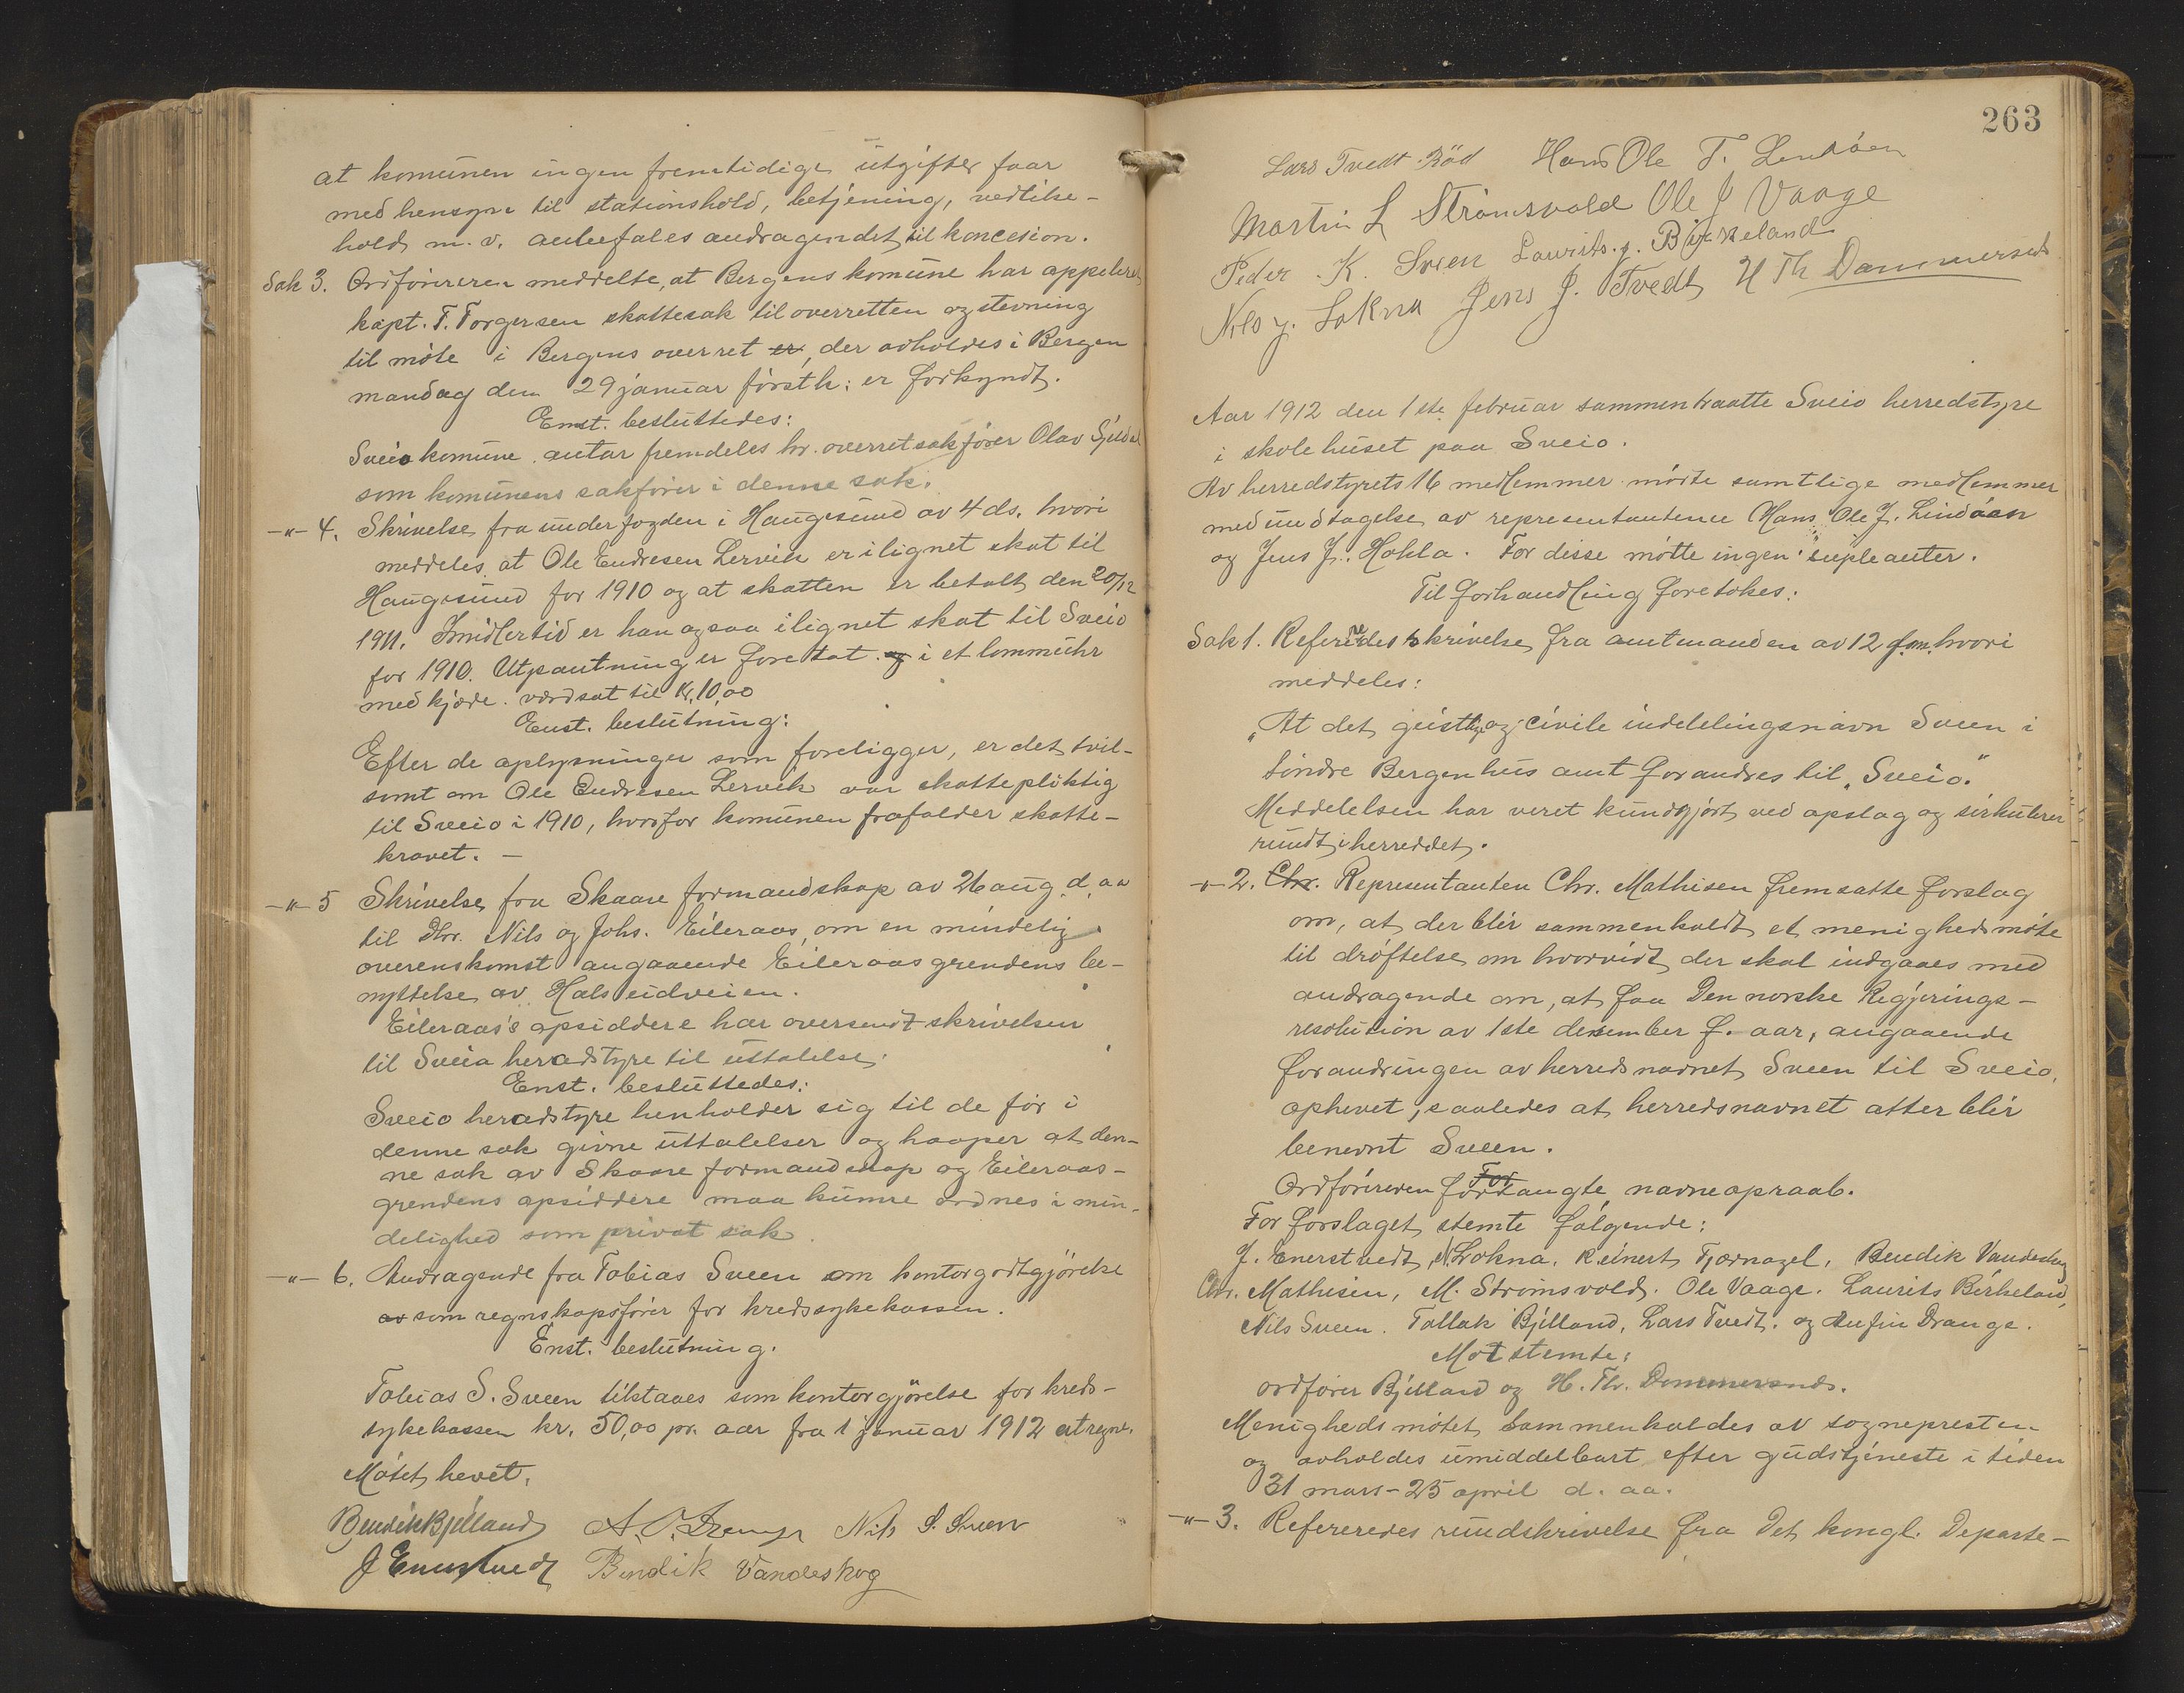 at komunen ingen fremtidige utgifter faar
med hensyn til stationshold, betjening, vedlike-
hold m. v. anbefales andragendet til koncesion.
Sak 3. Ordföreren meddelte, at Bergens komune har appeleret
kapt. T. Torgersen skattesak til overretten og stevning
til möte i Bergens overret er, der avholdes i Bergen
mandag den 29 januar förstk: er forkyndt.
Enst. besluttedes:
Sveio komune antar fremdeles hr. overretsakförer Olav
som komunens sakförer i denne sak.
-"- 4. Skrivelse fra underfogden i Haugesund av 4 ds. hvori
meddeles at Ole Endresen Lervik er ilignet skat til
Haugesund for 1910 og at skatten er betalt den 20/12
1911. Imidlertid er han ogsaa ilignet skat til Sveio
for 1910. Utpantning er foretat og i et lommeuhr
med kjæde værdsat til Kr. 10,00
Enst. beslutning:
Efter de oplysninger som foreligger, er det tvil-
somt om Ole Endresen Lervik var skattepliktig
til Sveio i 1910, hvorfor komunen frafalder skatte-
kravet. -
-"- 5 Skrivelse fra Skaare formandskap av 26 aug. d. aa
til Dhr. Nils og Johs. Eileraas, om en mindelig
overenskomst angaaende Eileraasgrendens be-
nyttelse av Halseidveien.
Eileraas's opsiddere har oversendt skrivelsen
til Sveio heradstyre til uttalelse.
Enst. besluttedes:
Sveio heradstyre henholder sig til de för i
denne sak givne uttalelser og haaper at den-
ne sak av Skaare formandskap og Eileraas-
grendens opsiddere maa kunne ordnes i min-
delighed som privat sak.
-"- 6. Andragende fra Tobias Sveen om kontorgodtgjörelse
av som regnskapsförer for kredssykekassen.
Enst. beslutning.
Tobias S. Sveen tilstaaes som kontorgjörelse for kreds-
sykekassen kr. 50,00 pr. aar fra 1 januar 1912 at regne.
Mötet hevet.
Bendik Bjelland A. O. Drange Nils S. Sveen
J Enerstvedt Bendik Vandeskog
263
Lars Tvedt Röd Hans Ole T. Lindöen
Martin L Strömsvold Ole J Vaage
Peder K. Sveen Laurits J. Birkeland
Nils J. Lokna Jens J. Tvedt H Th Dommersnes
Aar 1912 den 1ste februar sammentraatte Sveio herredstyre
i skolehuset paa Sveio.
Av herredstyrets 16 medlemmer mötte samtlige medlemmer
med undtagelse av representantene Hans Ole J. Lindöen
og Jens J. Hokla. For disse mötte ingen supleanter.
Til forhandling foretokes:
Sak 1. Refereredes skrivelse fra amtmanden av 12 f.m. hvori
meddeles:
"At det geistlige og civile inddelingsnavn Sveen i
söndre Bergenhus amt forandres til "Sveio."
Meddelelsen har veret kundgjört ved opslag og sirkulerer
rundt i herreddet.
-"- 2. Chr. Representanten Chr. Mathisen fremsatte forslag
om, at der blir sammenkaldt et menighedsmöte
til dröftelse om hvorvidt der skal indgaaes med
andragende om, at faa Den norske Regjerings-
resolution av 1ste desember f. aar, angaaende
forandringen av herredsnavnet Sveen til Sveio,
ophevet, saaledes at herredsnavnet atter blir
benevnt Sveen.
Ordföreren forlangte navneopraab.
For forslaget stemte fölgende:
J. Enerstvedt, N. Lokna. Reinert Tjernagel, Bendik Vandeskog
Chr. Mathisen, M. Strömsvold. Ole Vaage. Laurits Birkeland,
Nils Sveen. Tollak Bjelland, Lars Tvedt. og Anfin Drange.
Mot stemte:
ordförer Bjelland og H. Th. Dommersnes.
Menighedsmötet sammenkaldes av sognepresten
og avholdes umiddelbart efter gudstjeneste i tiden
31 mars - 25 april d. aa.
-"- 3. Refereredes rundskrivelse fra Det kongl. Departe-